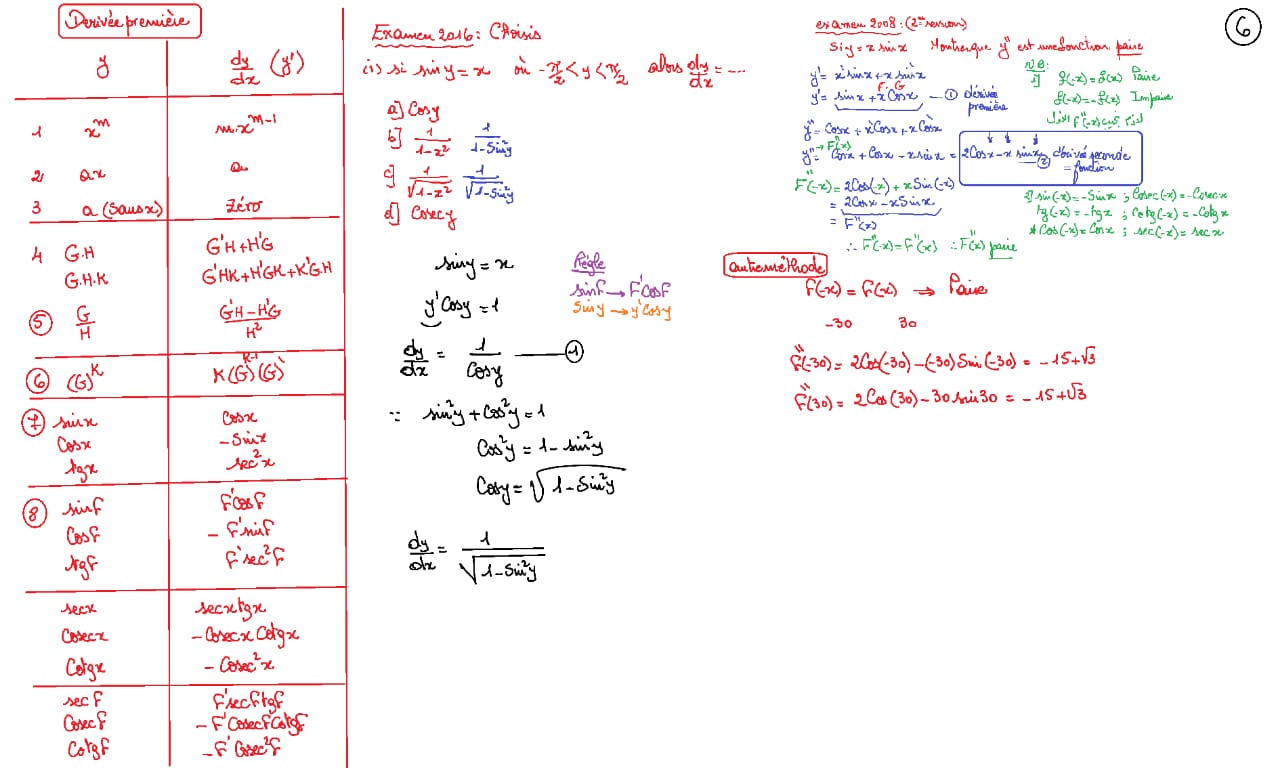 Derivée première
y dy/dx (y')
1 x^m m.x^(m-1)
2 ax a
3 a (sans x) Zéro
4 G.H G'H+H'G
G.H.K G'HK+H'GK+K'G.H
5 G/H (G'H-H'G)/H²
6 (G)^K K(G)^(K-1)(G)'
7 sin x cos x
Cos x -Sin x
tg x sec²x
8 sin F F'cos F
Cos F - F'sin F
tg F F'sec²F
sec x sec x tg x
Cosec x - Cosec x Cotg x
Cotg x - Cosec²x
sec F F'sec F tg F
Cosec F - F'Cosec F Cotg F
Cotg F - F'Cosec²F
Examen 2016: Choisis
(1) si sin y = x où -π/2 < y < π/2 alors dy/dx = ---
a] Cos y
b] 1/(1-x²) 1/(1-Sin²y)
c] 1/√(1-x²) 1/√(1-Sin²y)
d] Cosec y
sin y = x
y'Cos y = 1
dy/dx = 1/Cos y — 1
∵ sin²y + cos²y = 1
Cos²y = 1 - sin²y
Cos y = √(1-Sin²y)
dy/dx = 1/√(1-Sin²y)
Règle
sin F → F'Cos F
Sin y → y'Cos y
examen 2008: (2ème session)
Si y = x sin x Montre que y'' est une fonction paire
y' = x'sin x + x sin'x
F G
y' = sin x + x Cos x — 1 dérivée première
y'' = Cos x + x'Cos x + x Cos'x
→ F''(x)
y'' = Cos x + Cos x - x sin x = 2Cos x - x sin x 2 dérivée seconde = fonction
F''(-x) = 2Cos(-x) + x Sin(-x)
= 2Cos x - x Sin x
= F''(x)
∴ F''(-x) = F''(x) ∴ F''(x) paire
N.B:
1] f(-x) = f(x) Paire
f(-x) = -f(x) Impaire
F''(-x)
2] sin(-x) = - Sin x ; Cosec(-x) = - Cosec x
tg(-x) = - tg x ; Cotg(-x) = - Cotg x
* Cos(-x) = Cos x ; sec(-x) = sec x
autre méthode
F(-x) = F(x) ⇒ Paire
-30 30
F''(-30) = 2Cos(-30) - (-30) Sin(-30) = - 15+√3
F''(30) = 2Cos(30) - 30 sin 30 = - 15+√3
6